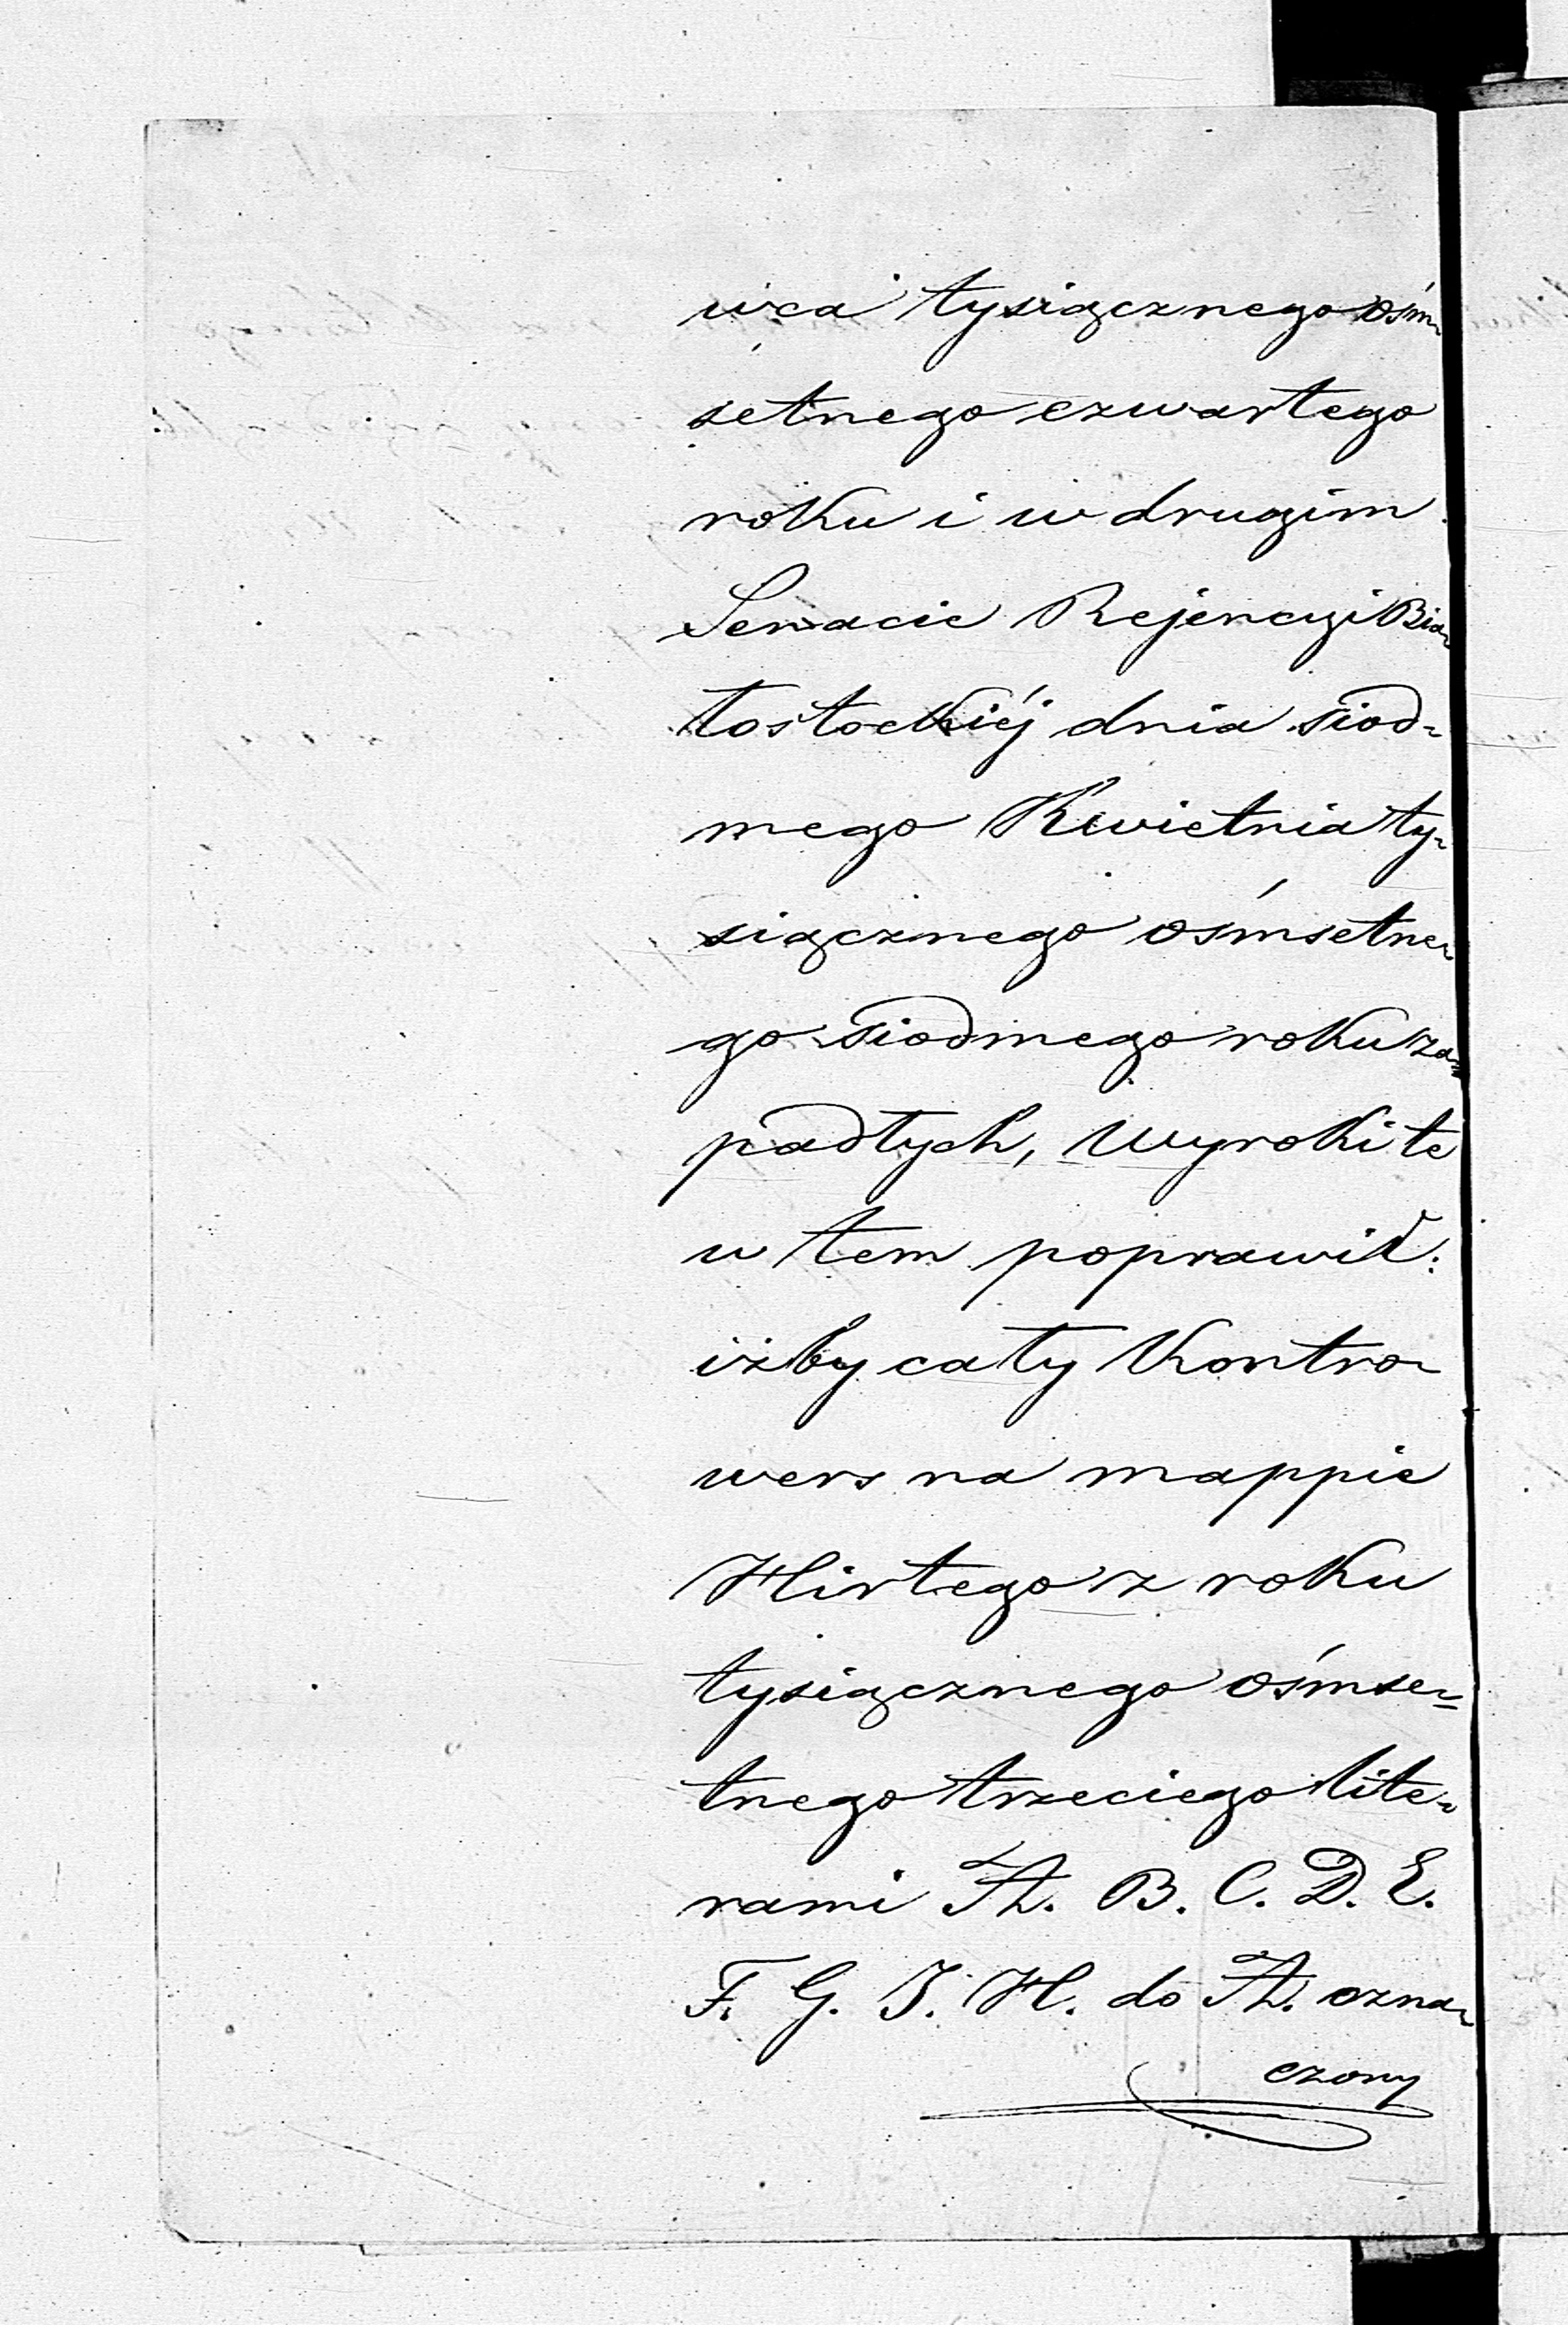 wca tysiącznego ośm-
setnego czwartego
roku i w drugim
Senacie Rejencyi Bia-
łostockiéj dnia siod-
mego Kwietnia ty-
siącznego ośmsetne-
go siodmego roku za-
padłych, Wyroki te
w tem poprawił:
iżby cały Kontro-
wers na mappie
Hirtego z roku
tysiącznego ośmse-
tnego trzeciego lite-
rami A. B. C. D. E.
F. G. J. H. do A. ozna-
czony